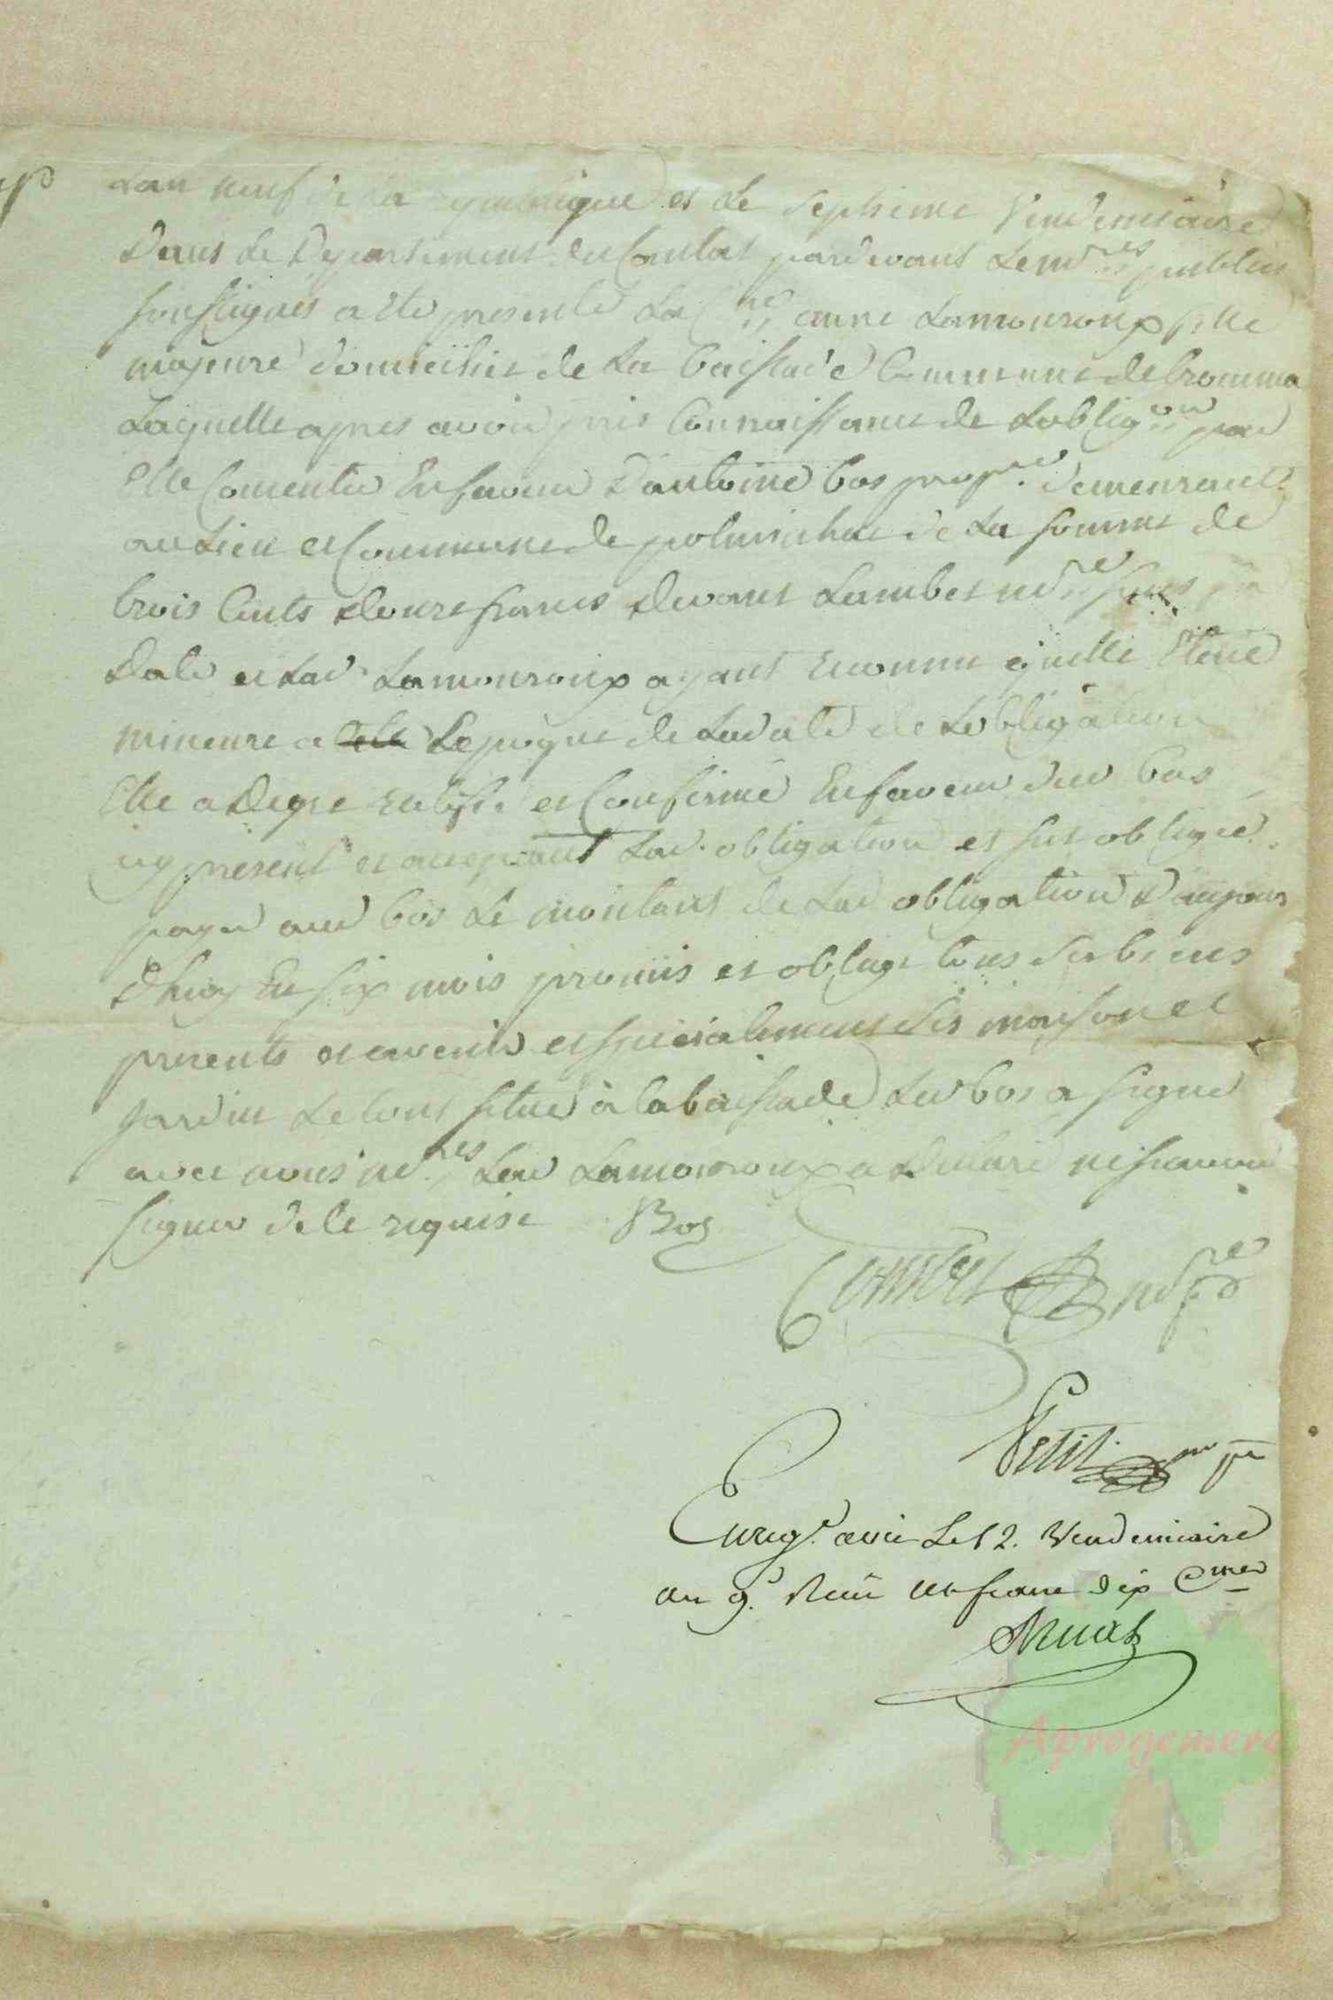 Lan neuf de la republique et le septieme Vendemiaire
Dans le Departement du Cantal pardevant les no.res publics
soussignés a ete presente La C.ne anne Lamouroux fille
majeure domiciliée de La baissade Commune de bromma
Laquelle apres avoir pris Connaissance de Loblig.on par
Elle Consentie En faveur Dantoine bos prop.re demeurant
au Lieu et Commune de polminhac de La somme de
trois Cents Douze francs Devant no.re sous
Date et Lad Lamouroux ayant reconnu quelle Etoit
mineure a Lepoque de La date de Lobligation
Elle a ratifié et Confirmé En faveur dud bos
icy present et acceptant Lad. obligation et sest obligée
payer aud bos Le montant de Lad obligation Daujour
Dhuy En six mois promis et obligé tous ses biens
presents et avenir et specialement ses maison et
jardin Le tout situé à la baissade Led bos a signé
avec nous no.res Lad Lamouroux a Declaré ne scavoir
signer de le requise Bos
no.re
Petit
Enreg.é Le 12. Vendemiaire
an 9. Reçu un franc dix C.mes
Aprogemere